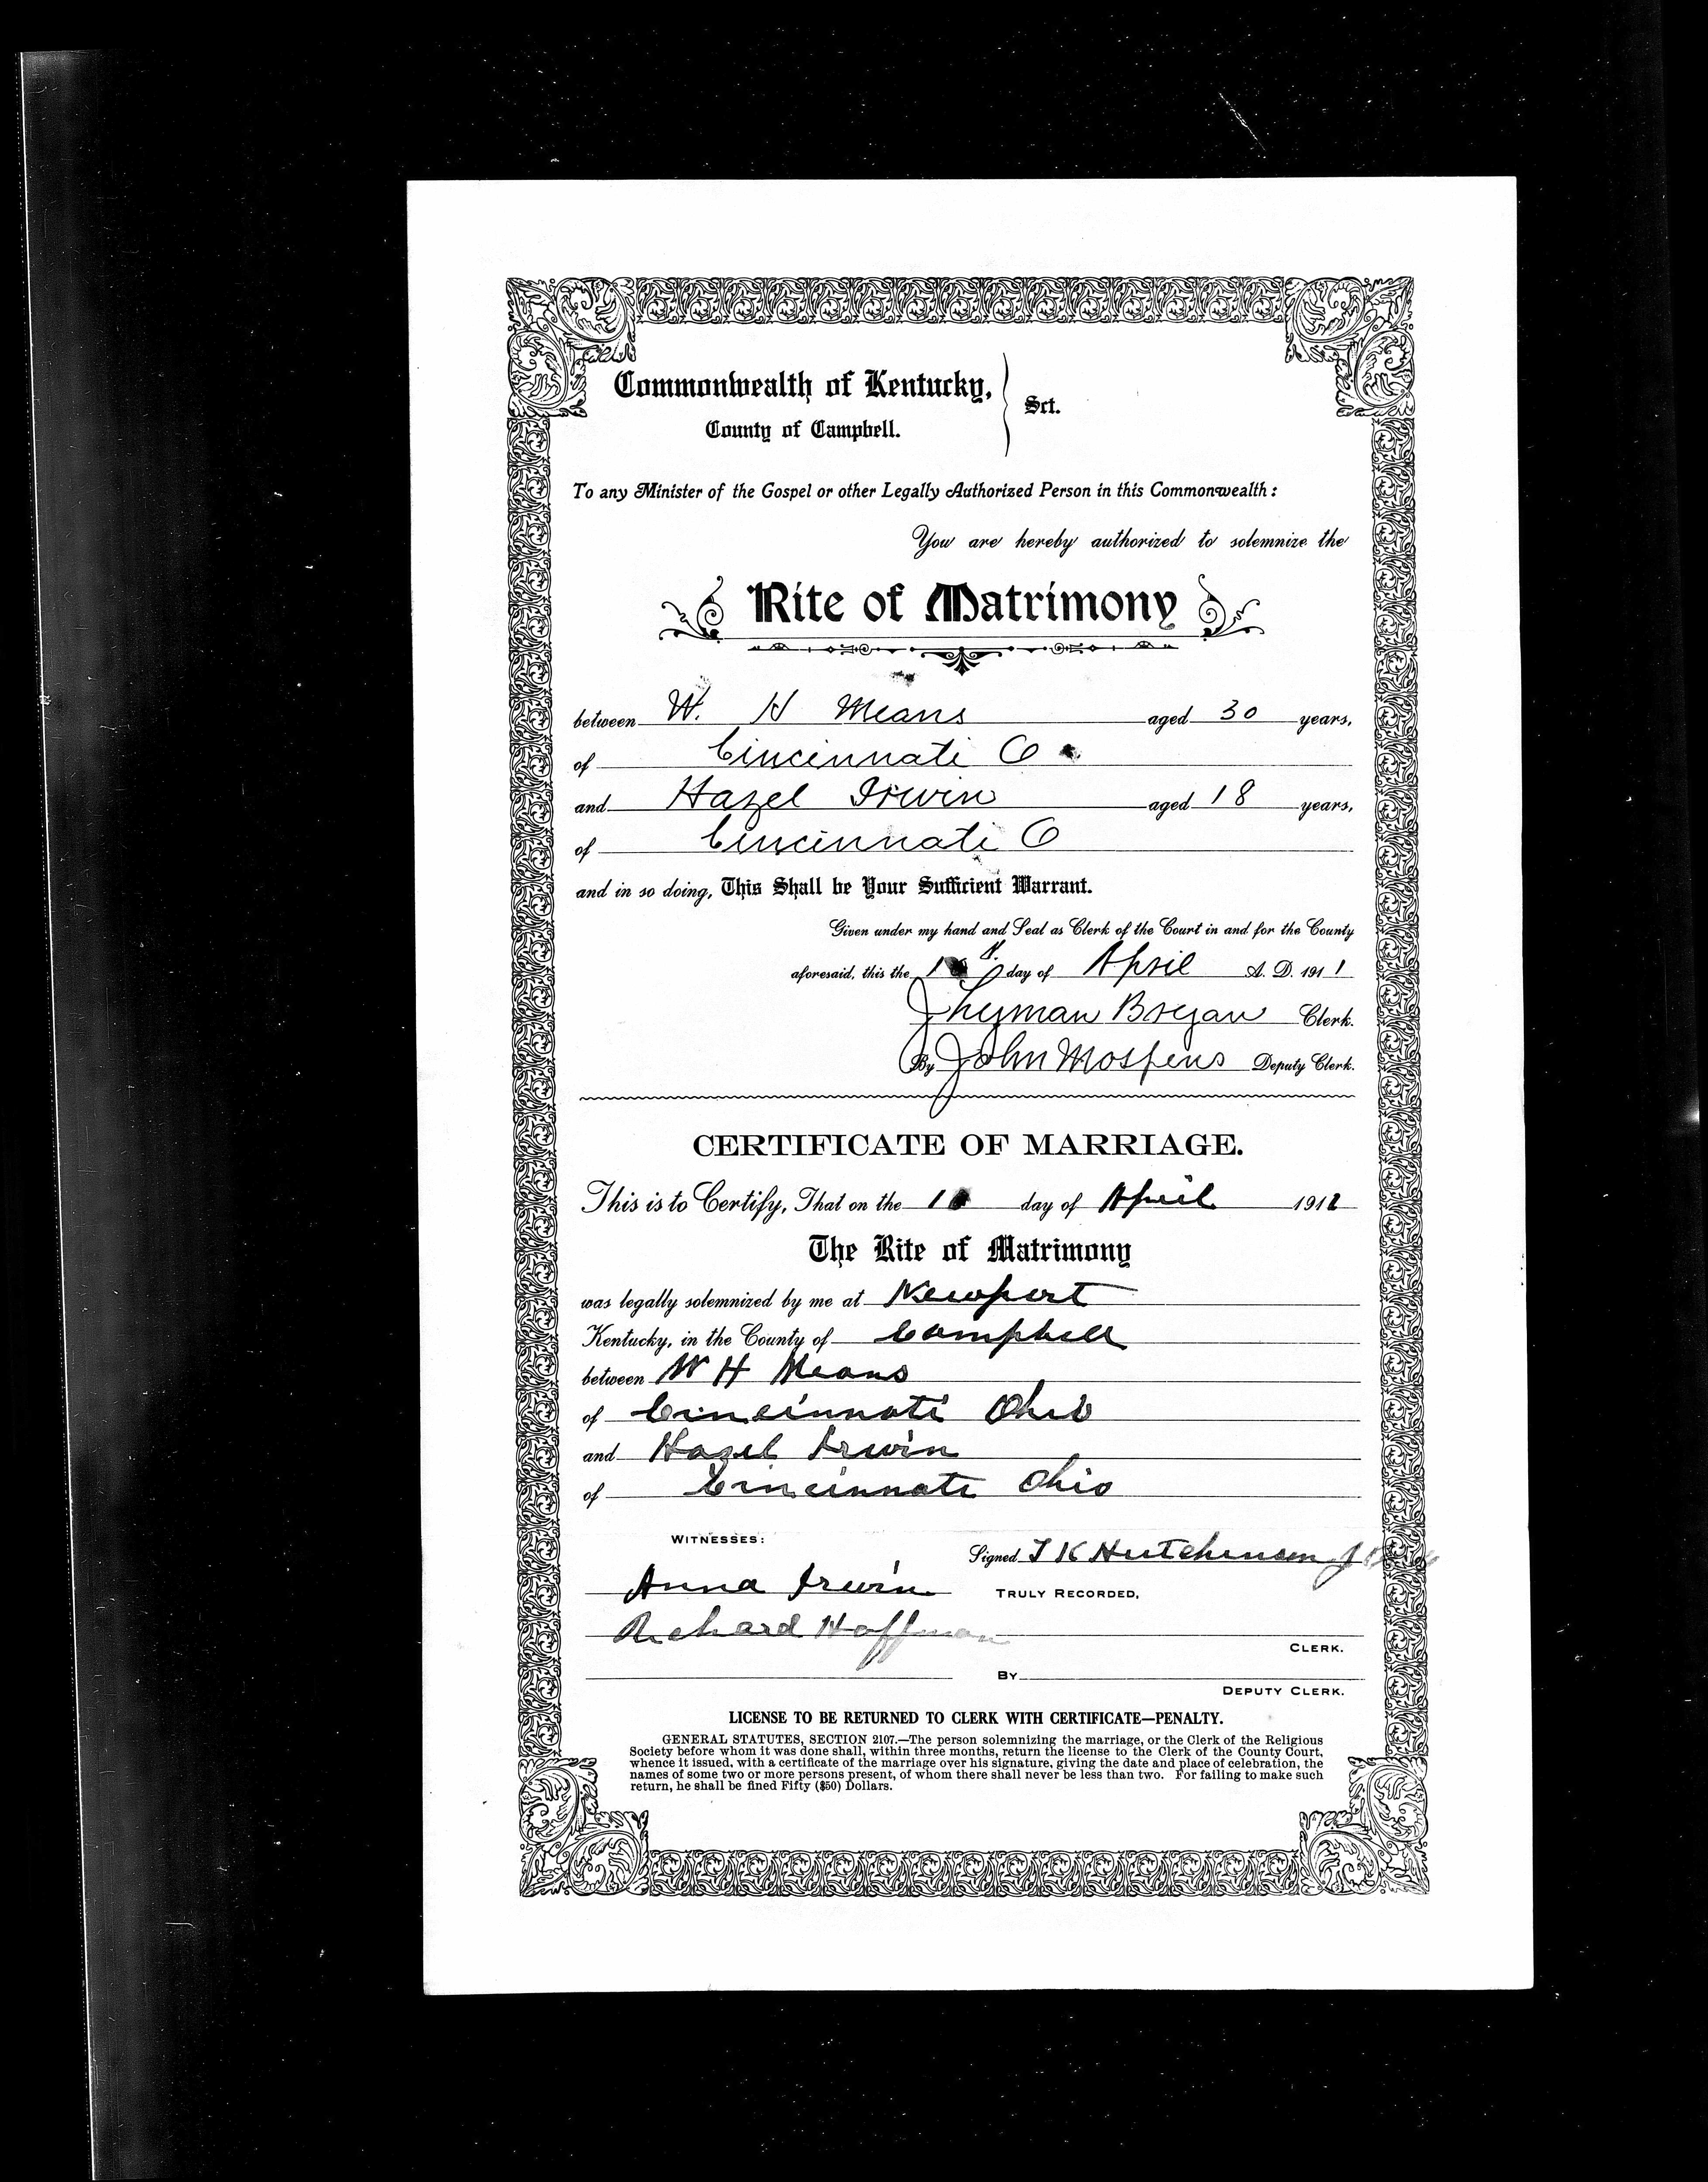 Commonwealth of Kentucky,
County of Campbell.
Sct.
To any Minister of the Gospel or other Legally Authorized Person in this Commonwealth:
You are hereby authorized to solemnize the
Rite of Matrimony
between W. H Means aged 30 years,
of Cincinnati O
and Hazel Irwin aged 18 years,
of Cincinnati O
and in so doing, This Shall be Your Sufficient Warrant.
Given under my hand and Seal as Clerk of the Court in and for the County
aforesaid, this the day of April A. D. 1911
Bryan Clerk.
By John Deputy Clerk.
CERTIFICATE OF MARRIAGE.
This is to Certify, That on the day of April 191
The Rite of Matrimony
was legally solemnized by me at Newport
Kentucky, in the County of Campbell
between W H Means
of Cincinnati Ohio
and Hazel Irwin
of Cincinnati Ohio
WITNESSES:
Signed T K Hutchinson
Anna Irwin
TRULY RECORDED,
Richard Hoffman
CLERK.
BY
DEPUTY CLERK.
LICENSE TO BE RETURNED TO CLERK WITH CERTIFICATE—PENALTY.
GENERAL STATUTES, SECTION 2107.—The person solemnizing the marriage, or the Clerk of the Religious
Society before whom it was done shall, within three months, return the license to the Clerk of the County Court,
whence it issued, with a certificate of the marriage over his signature, giving the date and place of celebration, the
names of some two or more persons present, of whom there shall never be less than two. For failing to make such
return, he shall be fined Fifty ($50) Dollars.